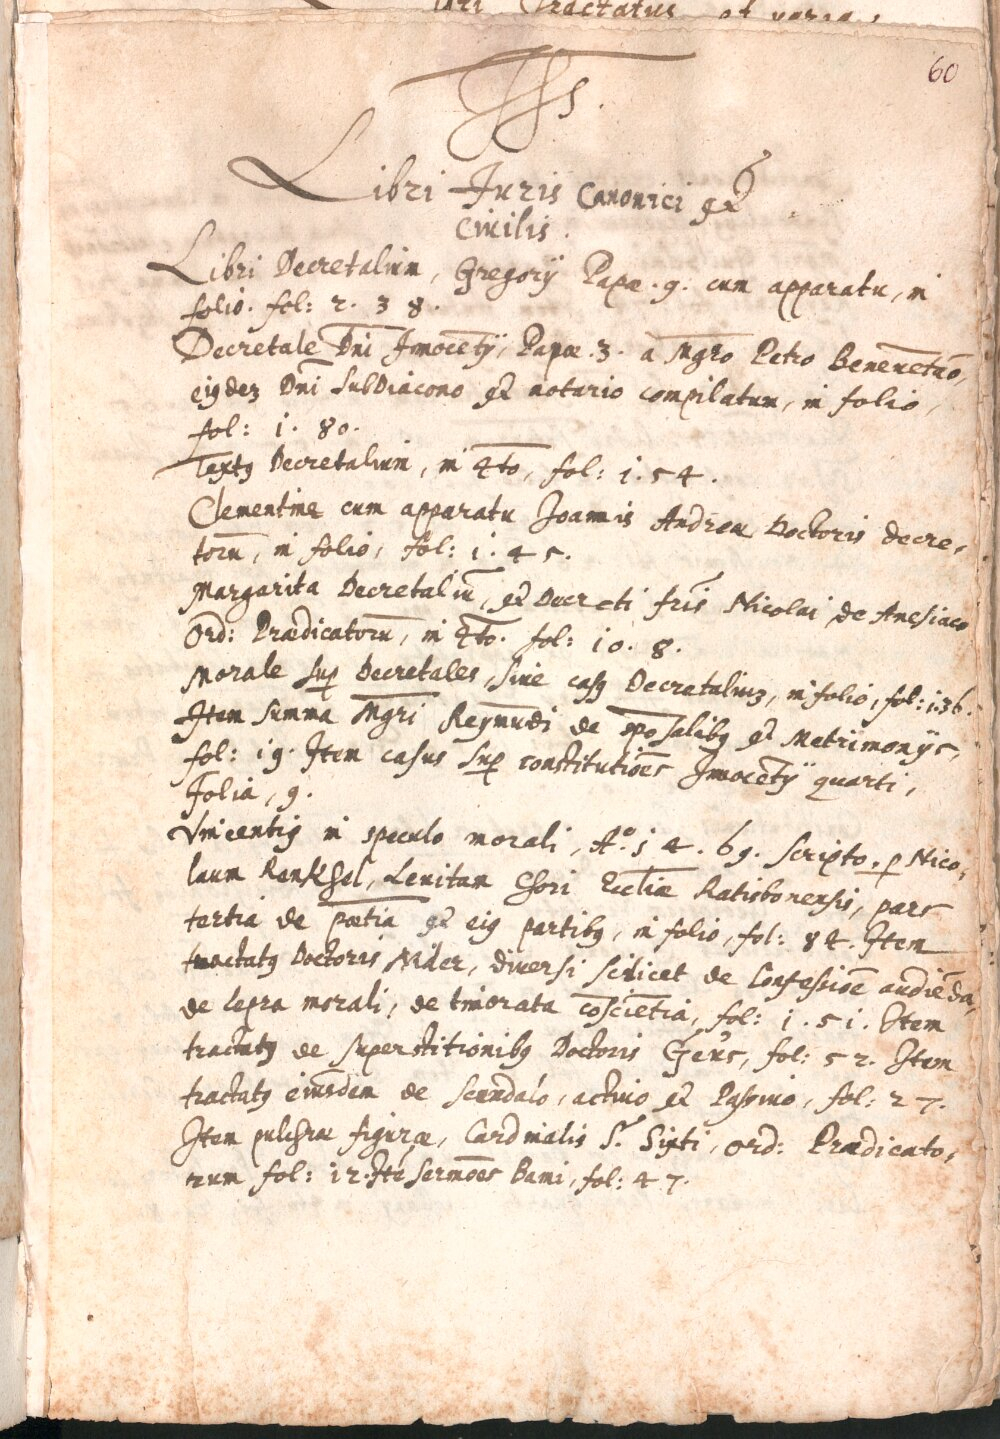 60
Jhs.
Libri Juris Canonici et
Civilis.
Libri Decretalium, Gregorÿ Papæ. 9. cum apparatu, in
folio. fol: 2. 3 8.
Decretale Dni Innocetÿ, Papæ. 3. a Mgro Petro Beneuetão,
eiusdez Dni Subdiacono et notario compilatum, in folio,
fol: 1. 80.
Textus Decretalium, in 4to, fol: 1. 5 4.
Clementinæ cum apparatu Joannis Andreæ Doctoris decre,
torū, in folio, fol: 1. 4 5.
Margarita Decretaliū, et Decreti fris Nicolai de Anesiaco
Ord: Prædicatorū, in 4to. fol: 10. 8.
Morale sup Decretales, siue casus Decretaliuz, in folio, fol: 136.
Item summa Mgri Reymūdi de sposalibus et Matrimonÿs,
fol: 19. Item casus sup constitutiōes Innocētÿ quarti,
Folia, 9.
Vincentius in speculo morali, Aº. 1 4. 69. scripto. p Nico,
laum Renksel, Leuitam Chori Eccliæ Ratisbonensis, pars
tertia de poetia et eius partibus, in folio, fol: 84. Item
tractatus Doctoris Nider, diuersi scilicet de Confessiōe audiēda,
de lepra morali, de timorata cōsciētia, fol: 1. 51. Item
tractatus de superstitionibus Doctoris Gers, fol: 52. Item
tractatus eiusdem de Scandalo, actiuo et Passiuo, fol: 27.
Item pulchræ figuræ, Cardinalis S. Sixti, ord: Prædicato,
rum fol: 12. Itē sermōes Bami, fol: 4 7.